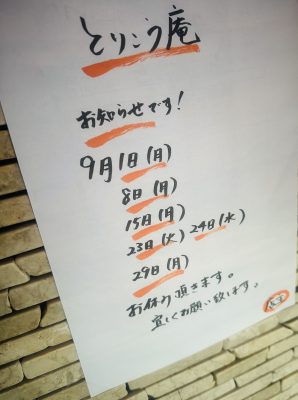 とりこう庵
お知らせです!
9月1日(月)
8日(月)
15日(月)
23日(火) 24日(水)
29日(月)
お休み頂きます。
宜しくお願い致します。
店主